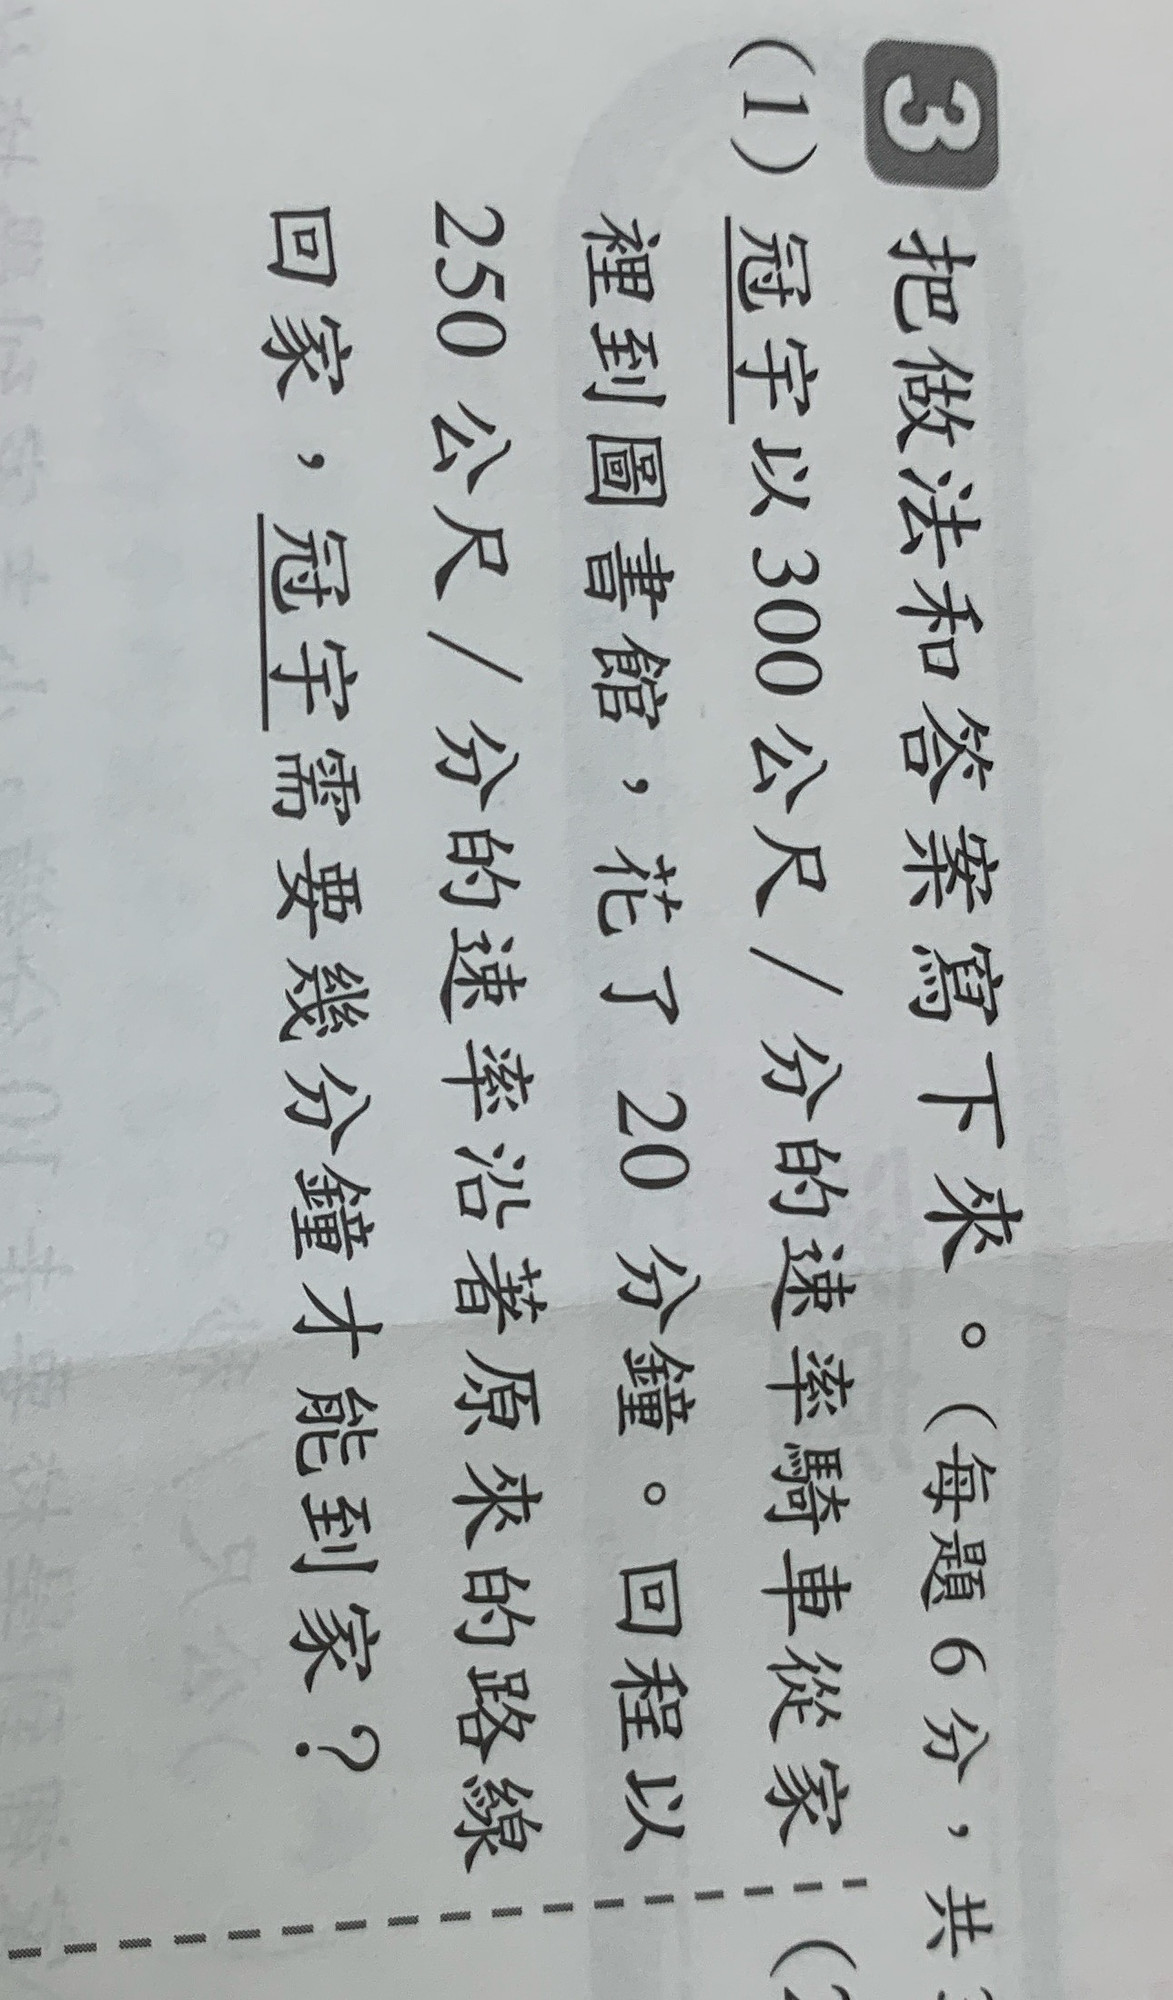 3 把做法和答案寫下來。(每題 6 分，共
(1) 冠宇以 300 公尺 / 分的速率騎車從家
裡到圖書館，花了 20 分鐘。回程以
250 公尺 / 分的速率沿著原來的路線
回家，冠宇需要幾分鐘才能到家？
(2